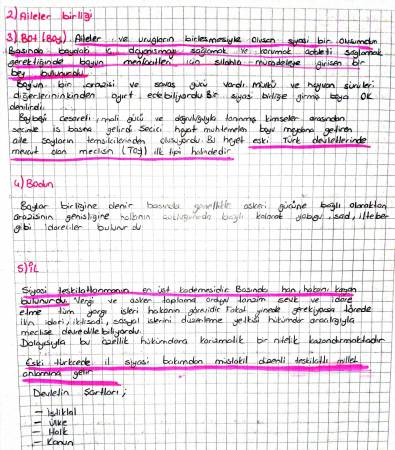 2) Aileler birliği
3) BOY (Boy) Aileler ve urugların birleşmesiyle oluşan siyasi bir oluşumdur
Başında boydaki iç dayanışmayı sağlamak ve korumak adaleti sağlamak
gerektiğinde boyun menfaatleri için silahlı mücadeleye girişen bir
bey bulunurdu.
Boyun bir arazisi ve savaş gücü vardı. Mülkü ve hayvan sürüleri
diğerlerininkinden ayırt edebiliyordu Bir siyasi birliğe girmiş boya OK
denilirdi
Boybeyi cesareti, mali gücü ve doğruluğuyla tanınmış kimseler arasından
seçimle iş başına gelirdi Seçici heyet muhtemelen boyu meydana getiren
aile soyların temsilcilerinden oluşuyordu. Bu heyet eski Türk devletlerinde
mevcut olan meclisin (Toy) ilk tipi halindedir
4) Bodun
Boylar birliğine denir başında genellikle askeri gücüne bağlı olaraktan
arazisinin genişliğine halkının bağlı kalarak yabgu, şad, ilteber
gibi idareciler bulunurdu
5) İL
Siyasi teşkilatlanmanın en üst kademesidir Başında han, hakan, kağan
bulunurdu. Vergi ve asker toplama orduyu tanzim sevk ve idare
etme tüm yargı işleri hakanın görevidir Fakat yinede gerekiyorsa törede
ilin idari, iktisadi, sosyal işlerini düzenleme yetkisi hükümdar aracılığıyla
meclise devredilebiliyordu.
Dolayısıyla bu özellik hükümdara karizmalik bir nitelik kazandırmaktadır
Eski türkçede il siyasi bakımdan müstakil düzenli teşkilatlı millet
anlamına gelir
Devletin Şartları;
- İstiklal
- Ülke
- Halk
- Kanun